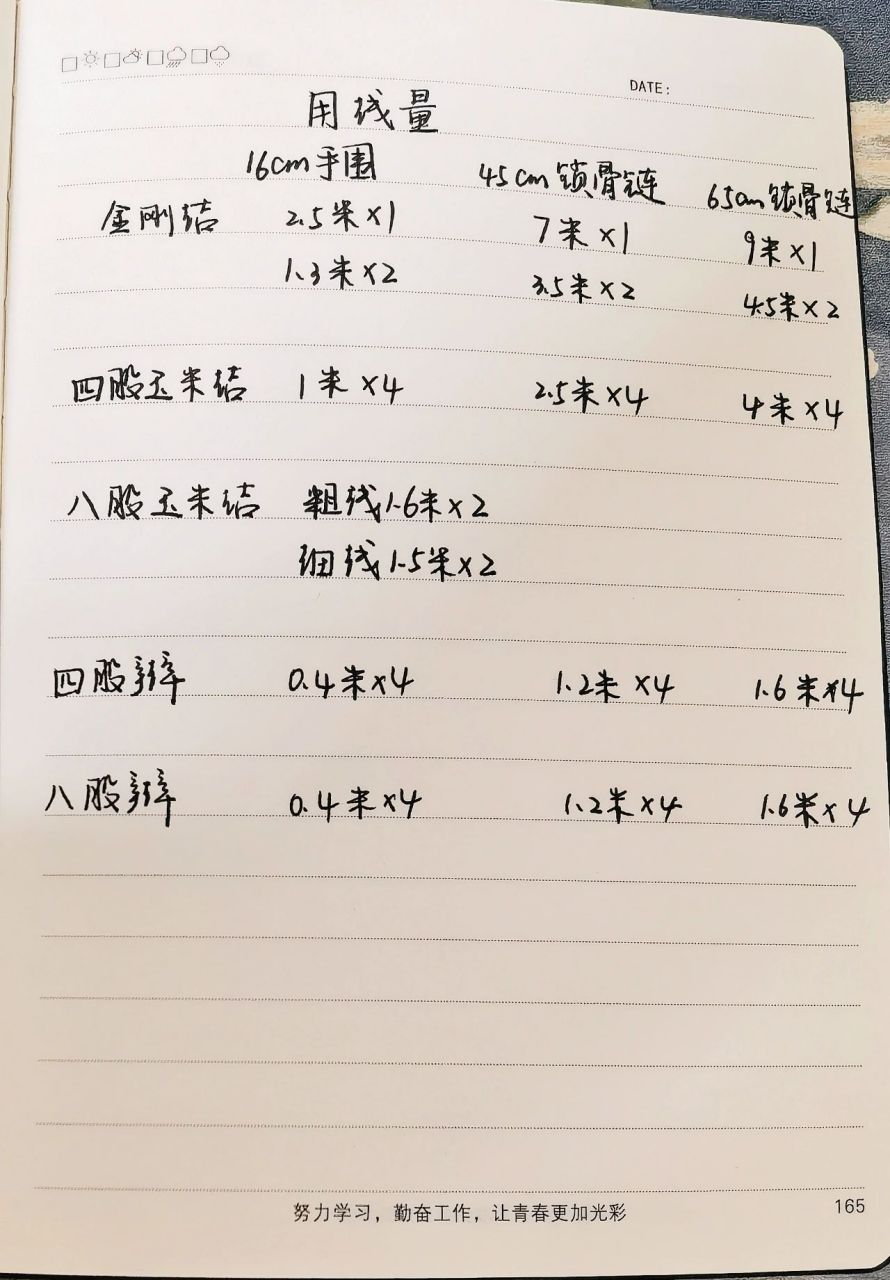 DATE:
用线量
16cm手围 45cm锁骨链 65cm锁骨链
金刚结 2.5米×1 7米×1 9米×1
1.3米×2 3.5米×2 4.5米×2
四股玉米结 1米×4 2.5米×4 4米×4
八股玉米结 粗线1.6米×2
细线1.5米×2
四股辫 0.4米×4 1.2米×4 1.6米×4
八股辫 0.4米×4 1.2米×4 1.6米×4
努力学习，勤奋工作，让青春更加光彩 165